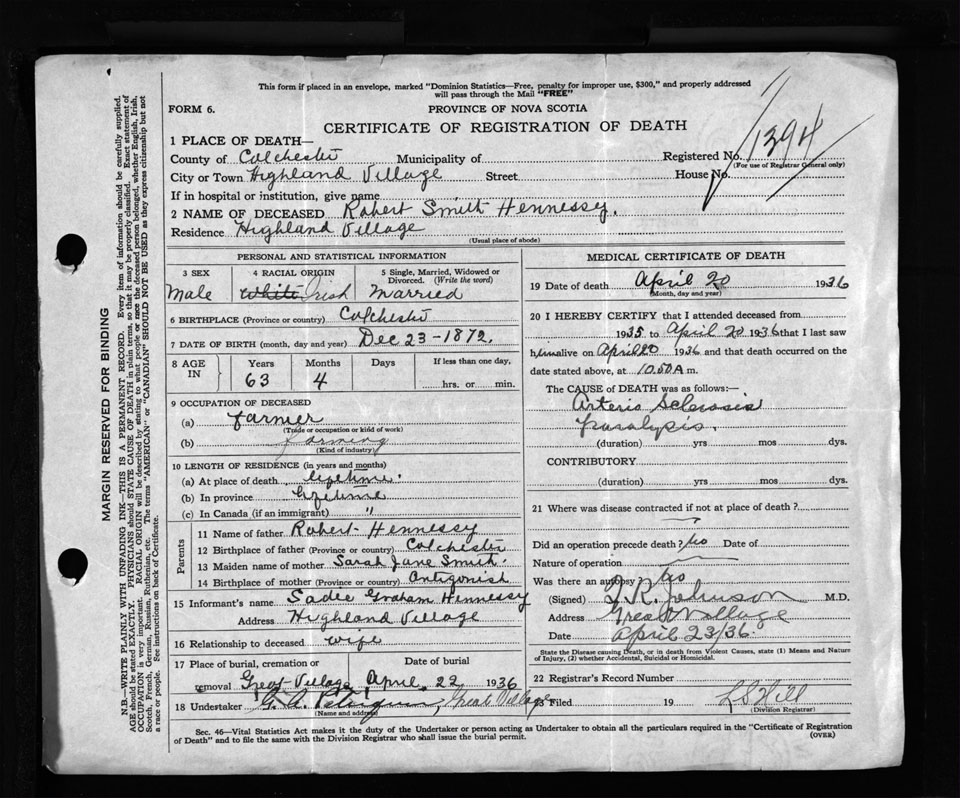 This form if placed in an envelope, marked "Dominion Statistics—Free, penalty for improper use, $300," and properly addressed
will pass through the Mail "FREE"
FORM 6.
PROVINCE OF NOVA SCOTIA
CERTIFICATE OF REGISTRATION OF DEATH
1394
1 PLACE OF DEATH—
County of Colchester Municipality of Registered No.
(For use of Registrar General only)
City or Town Highland Village Street House No.
If in hospital or institution, give name
2 NAME OF DECEASED Robert Smith Hennessy.
Residence Highland Village
(Usual place of abode)
PERSONAL AND STATISTICAL INFORMATION
3 SEX 4 RACIAL ORIGIN 5 Single, Married, Widowed or Divorced. (Write the word)
Male White Irish Married
6 BIRTHPLACE (Province or country) Colchester
7 DATE OF BIRTH (month, day and year) Dec 23-1872.
8 AGE IN Years Months Days If less than one day,
63 4 hrs. or min.
9 OCCUPATION OF DECEASED
(a) farmer
(Trade or occupation or kind of work)
(b) farming
(Kind of industry)
10 LENGTH OF RESIDENCE (in years and months)
(a) At place of death lifetime.
(b) In province lifetime
(c) In Canada (if an immigrant) "
Parents
11 Name of father Robert Hennessy
12 Birthplace of father (Province or country) Colchester
13 Maiden name of mother Sarah Jane Smith.
14 Birthplace of mother (Province or country) Antigonish
15 Informant's name Sadie Graham Hennessy
Address Highland Village
16 Relationship to deceased wife
17 Place of burial, cremation or removal Date of burial
Great Village April 22 1936
18 Undertaker G. A. Great Village
(Name and address)
MEDICAL CERTIFICATE OF DEATH
19 Date of death April 20 1936
(Month, day and year)
20 I HEREBY CERTIFY that I attended deceased from
1935 to April 20 1936 that I last saw
him alive on April 20 1936 and that death occurred on the
date stated above, at 10.50 A m.
The CAUSE of DEATH was as follows:—
Arterio Sclerosis
paralysis.
(duration) yrs mos dys.
CONTRIBUTORY
(duration) yrs. mos. dys.
21 Where was disease contracted if not at place of death?
Did an operation precede death? No Date of
Nature of operation
Was there an autopsy? No
(Signed) T. R. Johnson M.D.
Address Great Village
Date April 23/36.
State the Disease causing Death, or in death from Violent Causes, state (1) Means and Nature
of Injury, (2) whether Accidental, Suicidal or Homicidal.
22 Registrar's Record Number
23 Filed 19 L S Hill
(Division Registrar)
Sec. 46—Vital Statistics Act makes it the duty of the Undertaker or person acting as Undertaker to obtain all the particulars required in the "Certificate of Registration
of Death" and to file the same with the Division Registrar who shall issue the burial permit. (OVER)
MARGIN RESERVED FOR BINDING
N.B.—WRITE PLAINLY WITH UNFADING INK—THIS IS A PERMANENT RECORD. Every item of information should be carefully supplied.
AGE should be stated EXACTLY. PHYSICIANS should STATE CAUSE OF DEATH in plain terms, so that it may be properly classified. Exact statement of
OCCUPATION is very important. RACIAL ORIGIN will be described by stating to what people or race the deceased person belonged, whether English, Irish,
Scotch, French, German, Russian, Ruthenian, etc. The terms "AMERICAN" or "CANADIAN" SHOULD NOT BE USED as they express citizenship but not
a race or people. See instructions on back of Certificate.